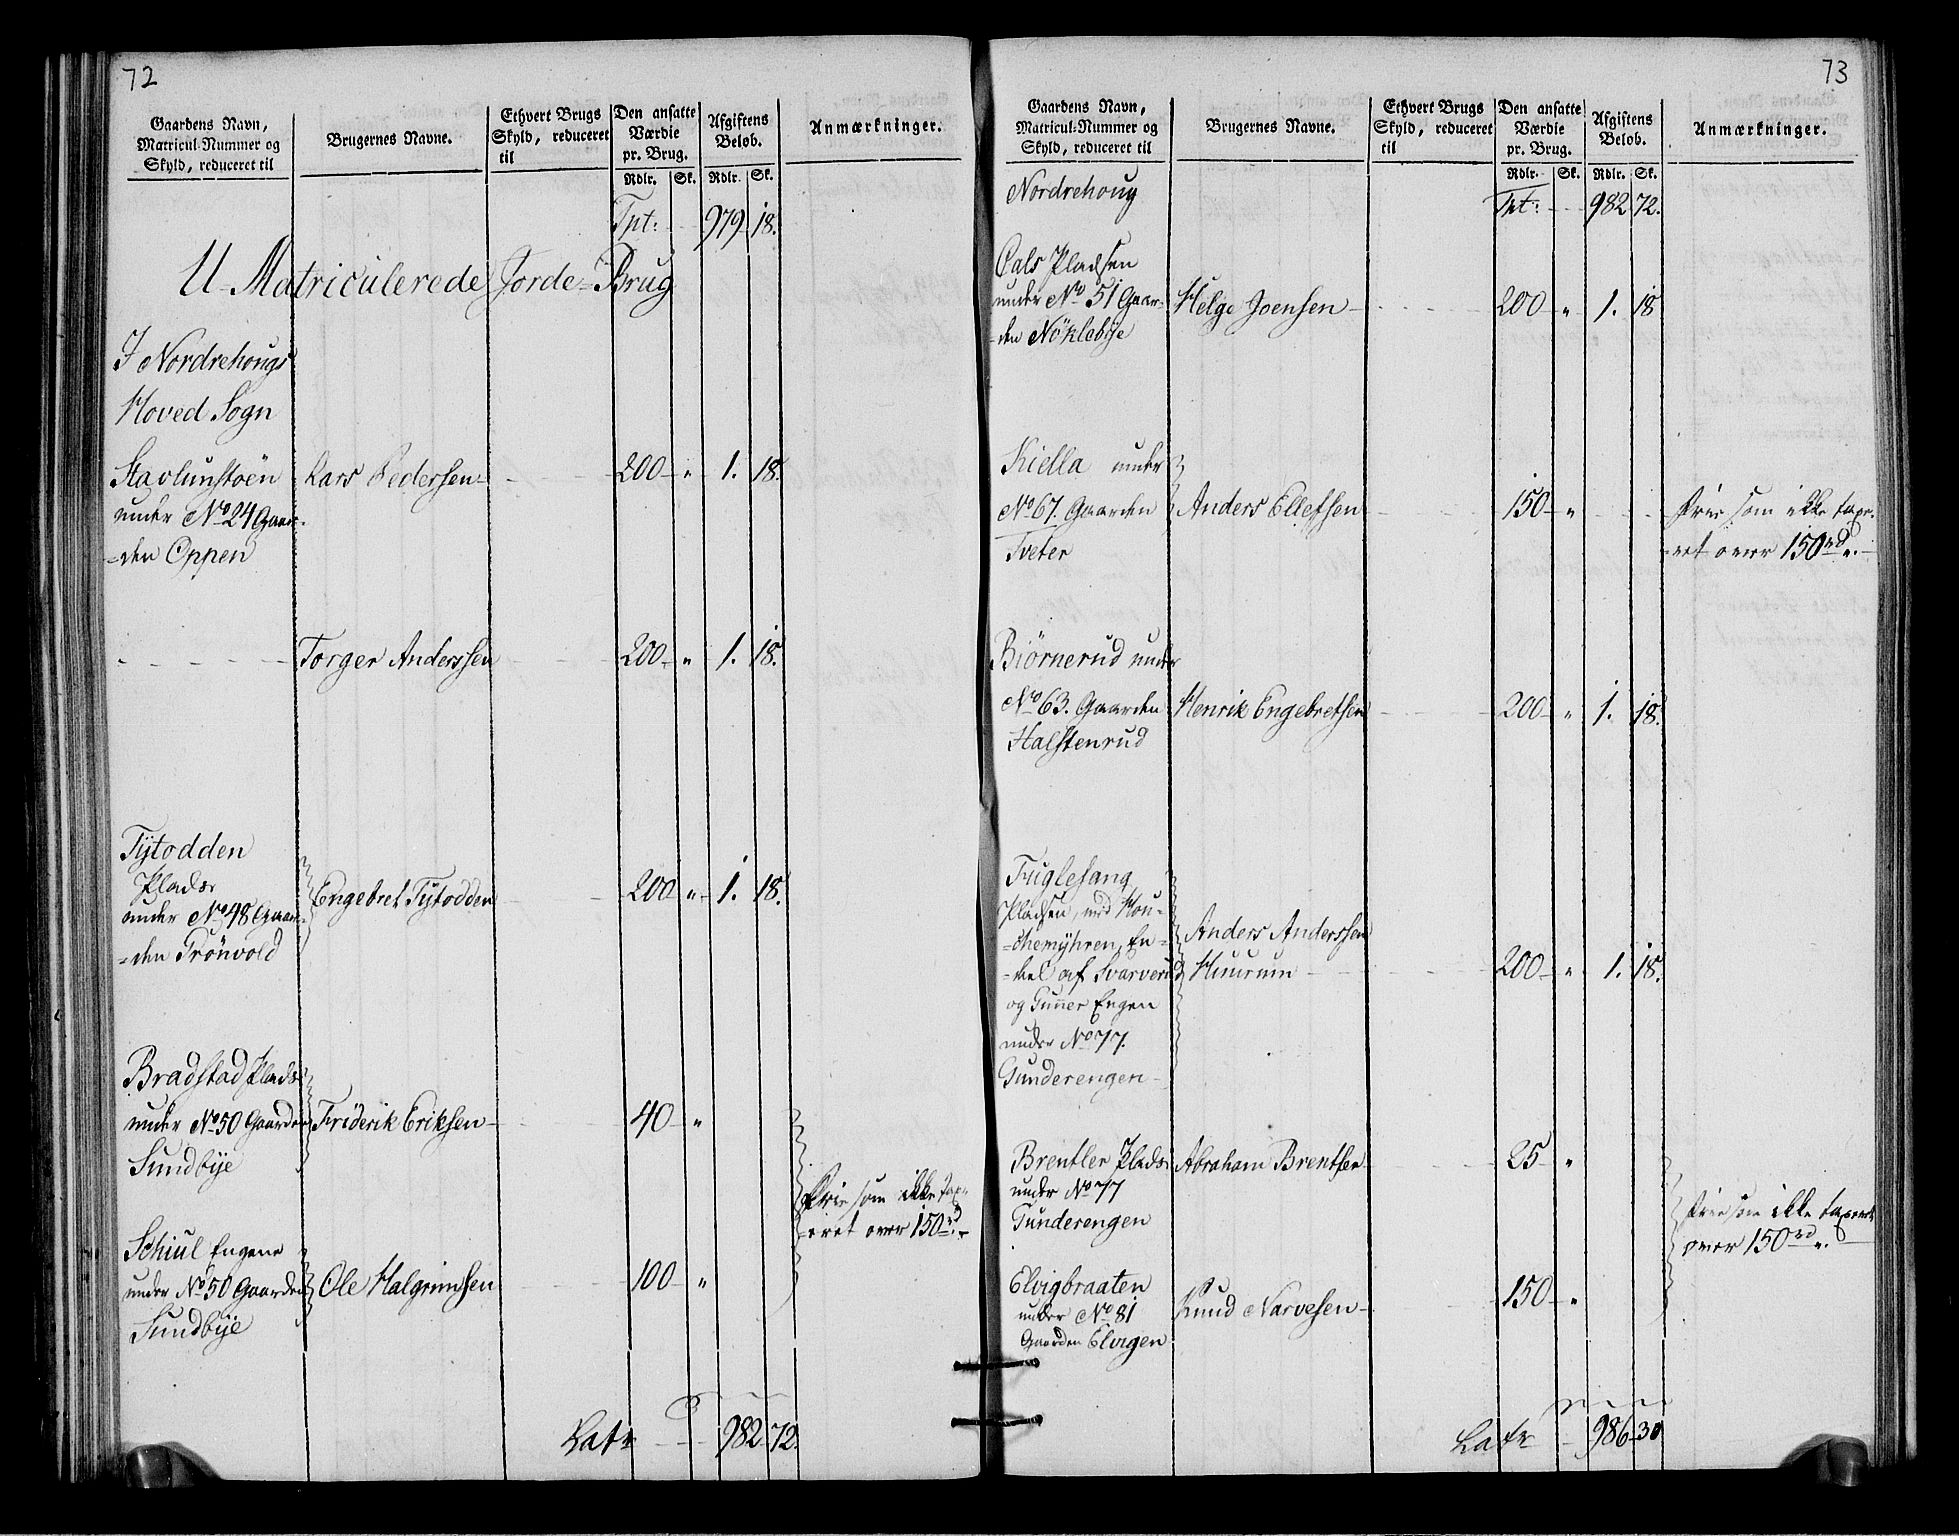 72
Gaardens Navn,
Matricul-Nummer og
Skyld, reduceret til
Brugernes Navne.
Ethvert Brugs
Skyld, reduceret
til
Den ansatte
Værdie
pr. Brug.
Afgiftens
Beløb.
Anmærkninger.
Rdlr. Sk. Rdlr. Sk.
Tpt: 979 18.
U-Matriculerede Jorde-Brug
I Nordrehougs
Hoved Sogn
Stavlunstøen Lars Pedersen 200 " 1. 18.
under No 24 Gaar-
-den Oppen
Torger Anderssen 200 " 1. 18.
Tÿtodden
Plads
under No 48 Gaar-
-den Trönvold
Engebret Tÿtodden 200 " 1. 18.
Bradstad Plads
under No 50 Gaarden Friderik Eriksen 40 "
Sundbÿe
Frie som ikke tax-
-eret over 150 rd.
Schiul Engene
under No 50 Gaarden Ole Halgrimsen 100 "
Sundbÿe
Latr 982 72.
73
Gaardens Navn,
Matricul-Nummer og
Skyld, reduceret til
Brugernes Navne.
Ethvert Brugs
Skyld, reduceret
til
Den ansatte
Værdie
pr. Brug.
Afgiftens
Beløb.
Anmærkninger.
Rdlr. Sk. Rdlr. Sk.
Nordrehoug Tpt: 982 72.
Pals Pladsen
under No 51 Gaar- Helge Joensen 200 " 1. 18
-den Nöklebÿe
Kiella under
No 67. Gaarden Anders Ellefsen 150 "
Tveter
Frie som ikke taxe-
-ret over 150 rd.
Biørnerud under
No 63. Gaarden Henrik Engebretsen 200 " 1. 18.
Halstenrud
Fuglesang
Pladsen, med Hou-
-chemÿhren, En-
-kel af Svarverud
og Gunner Engen
under No 77.
Gunderengen
Anders Anderssen
Huurum 200 " 1. 18.
Brentler Plads Abraham Brentsen 25 "
under No 77
Gunderengen
Frie som ikke taxeret
over 150 rd.
Elvigbraaten
under No 81 Knud Narvesen 150 "
Gaarden Elvigen
Latr 986 30